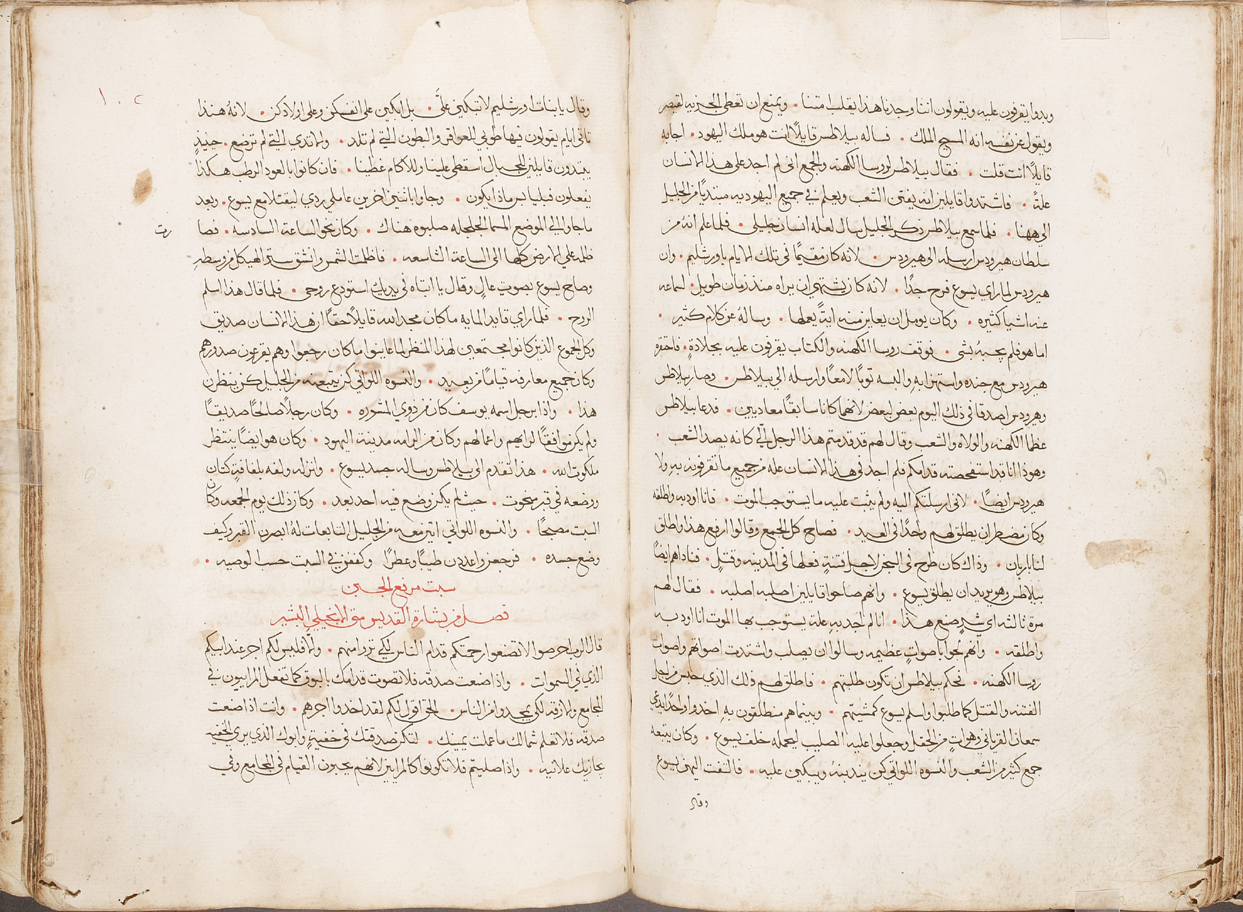 وبدوا يقرفون عليه ويقولون اننا وجدنا هذا يقلب امتنا • ويمنع ان تعطى الجزيه لقيصر
ويقول عن نفسه انه المسيح الملك • فساله بيلاطس قايلاً انت هو ملك اليهود • اجابه
قايلاً انت قلت • فقال بيلاطس لروسا الكهنه والجمع انى لم اجد على هذا الانسان
علةً • فاشتدوا قايلين انه يفتن الشعب ويعلم في جميع اليهوديه مبتديًا من الجليل
الى ههنا • فلما سمع بيلاطس ذكر الجليل سال لعله انسان جليلي • فلما علم انه من
سلطان هيرودس ارسله الى هيرودس • لانه كان مقيمًا في تلك الايام باورشليم • وان
هيرودس لما راي يسوع فرح جدًا • لانه كان يشتهي ان يراه منذ زمان طويل • لسماعه
عنه اشيا كثيره • وكان يومل ان يعاين منه ايةً يعملها • وساله عن كلام كثير •
اما هو فلم يجبه بشي • فوقف روسا الكهنه والكتاب يقرفون عليه بجلادةٍ • فاحتقره
هيرودس مع جنده واستهزا به والبسه ثوبًا لامعًا وارسله الى بيلاطس • وصار بيلاطس
وهيرودس اصدقا في ذلك اليوم بعض لبعض لانهما كانا سابقًا معاديين • فدعا بيلاطس
عظما الكهنه والولاه والشعب وقال لهم قد قدمتم هذا الرجل الي كانه يصد الشعب •
وهوذا انا قد استفحصته قدامكم فلم اجد في هذا الانسان علةً من جميع ما تقرفونه به ولا
هيرودس ايضًا • لانى ارسلتكم اليه ولم يثبت عليه ما يستوجب الموت • فانا اودبه واطلقه
وكان مضطر ان يطلق لهم واحدًا في العيد • فصاح كل الجميع وقالوا ارفع هذا واطلق
لنا باربان • وذاك كان طرح في السجن لاجل فتنةٍ فعلها في المدينه وقتلٍ • فناداهم ايضًا
بيلاطس وهو يريد ان يطلق يسوع • وانهم صاحوا قايلين اصلبه اصلبه • فقال لهم
مرة ثالثه اي شرٍ صنع هذا • انا لم اجد به علة يستوجب بها الموت انا اودبه
واطلقه • وانهم لجوا باصواتٍ عظيمه وسالوا ان يصلب واشتدت اصواتهم واصوات
روسا الكهنه • فحكم بيلاطس ان تكون طلبتهم • فاطلق لهم ذلك الذي حبس من اجل
الفتنه والقتل كما طلبوا واسلم يسوع كمشيتهم • وبينماهم منطلقون به اخذوا واحدًا يدعى
سمعان القرياني وهو اتٍ من الحقل وجعلوا عليه الصليب ليحمله خلف يسوع • وكان يتبعه
جمع كثير من الشعب والنسوه اللواتى كن يندبنه ويبكين عليه • فالتفت اليهن يسوع
وقال
١٠٢
وقال يا بنات اورشليم لا تبكين عليَّ • بل ابكين على انفسكن وعلى اولادكن • لانه هذا
تاتى ايام يقولون فيها طوبى للعواقر والبطون التى لم تلد • والثدي التى لم ترضع • حينيذٍ
يبتدون قايلين للجبال اسقطى علينا وللاكام غطينا • فان كانوا بالعود الرطب هكذا
يفعلون فباليابس ماذا يكون • وجاوا باثنين اخرين عاملي ردي ليقتلا مع يسوع • وبعد
ما جاوا الى الموضع المسما الجلجله صلبوه هناك • وكان نحو الساعة السادسه • فصارت
ظلمه علي الارض كلها الى الساعة التاسعه • فاظلمت الشمس وانشق ستر الهيكل من وسطه
وصاح يسوع بصوتٍ عالٍ وقال يا ابتاه في يديك استودع روحي • فلما قال هذا اسلم
الروح • فلما راي قايد المايه ما كان مجد الله قايلاً حقًا ان هذا الانسان صديق
وكل الجموع الذين كانوا مجتمعين لهذا المنظر لما عاينوا ما كان رجعوا وهم يقرعون صدورهم
وكان جميع معارفه قيامًا من بعيد • والنسوه اللواتى كن يتبعنه من الجليل كن ينظرن
هذا • واذا برجل اسمه يوسف كان من ذوي المشوره • وكان رجلاً صالحًا صديقًا
ولم يكن موافقًا لرايهم واعمالهم وكان من الرامه مدينة اليهود • وكان هو ايضًا ينتظر
ملكوت الله • هذا تقدم الى بيلاطس وساله جسد يسوع • وانزله ولفه بلفافةِ كتان
ووضعه في قبر منحوت • حيث لم يكن وضع فيه احد بعد • وكان ذلك يوم الجمعه وكان
السبت مصبحًا • والنسوه اللواتى اتين معه من الجليل التابعات له ابصرن القبر وكيف
وضع جسده • فرجعن واعددن طيبًا وعطرًا • وكففن في السبت حسب الوصيه •
سبت مرفع الجبن
فصل من بشارة القديس متى الانجيلي البشير
قال الرب احرصوا الا تصنعوا رحمتكم قدام الناس لكى تروا منهم • والا فليس لكم اجر عند ابيكم
الذي في السموات • واذا صنعت صدقه فلا تصوت قدامك بالبوق كما تفعل المرايون في
المجامع والازقه لكى يمجدوا من الناس • الحق اقول لكم لقد اخذوا اجرهم • وانت اذا صنعت
صدقه فلا تعلم شمالك ما عملت يمينك • لتكن صدقتك في خفيةٍ وابوك الذي يرى الخفيه
يجازيك علانيه • واذا صليتم فلا تكونوا كالمرايين لانهم يحبون القيام في المجامع وفي